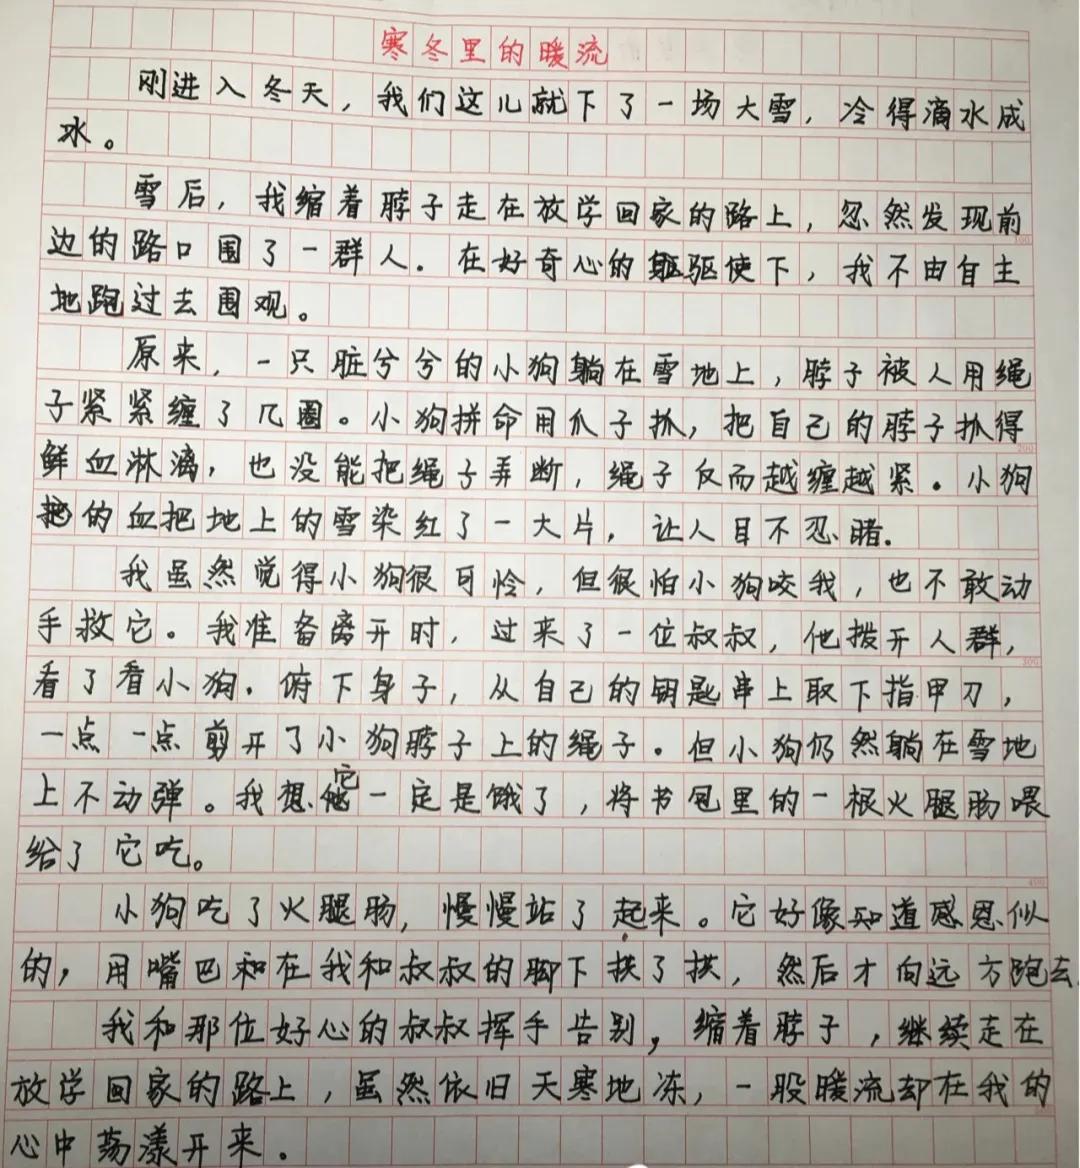 寒冬里的暖流
刚进入冬天，我们这儿就下了一场大雪，冷得滴水成
冰。
雪后，我缩着脖子走在放学回家的路上，忽然发现前
边的路口围了一群人．在好奇心的驱使下，我不由自主
地跑过去围观。
原来，一只脏兮兮的小狗躺在雪地上，脖子被人用绳
子紧紧缠了几圈。小狗拼命用爪子抓，把自己的脖子抓得
鲜血淋漓，也没能把绳子弄断，绳子反而越缠越紧．小狗
的血把地上的雪染红了一大片，让人目不忍睹．
我虽然觉得小狗很可怜，但很怕小狗咬我，也不敢动
手救它。我准备离开时，过来了一位叔叔，他拨开人群，
看了看小狗．俯下身子，从自己的钥匙串上取下指甲刀，
一点一点剪开了小狗脖子上的绳子。但小狗仍然躺在雪地
上不动弹。我想它一定是饿了，将书包里的一根火腿肠喂
给了它吃。
小狗吃了火腿肠，慢慢站了起来。它好像知道感恩似
的，用嘴巴和在我和叔叔的脚下拱了拱，然后才向远方跑去．
我和那位好心的叔叔挥手告别，缩着脖子，继续走在
放学回家的路上，虽然依旧天寒地冻，一股暖流却在我的
心中荡漾开来．